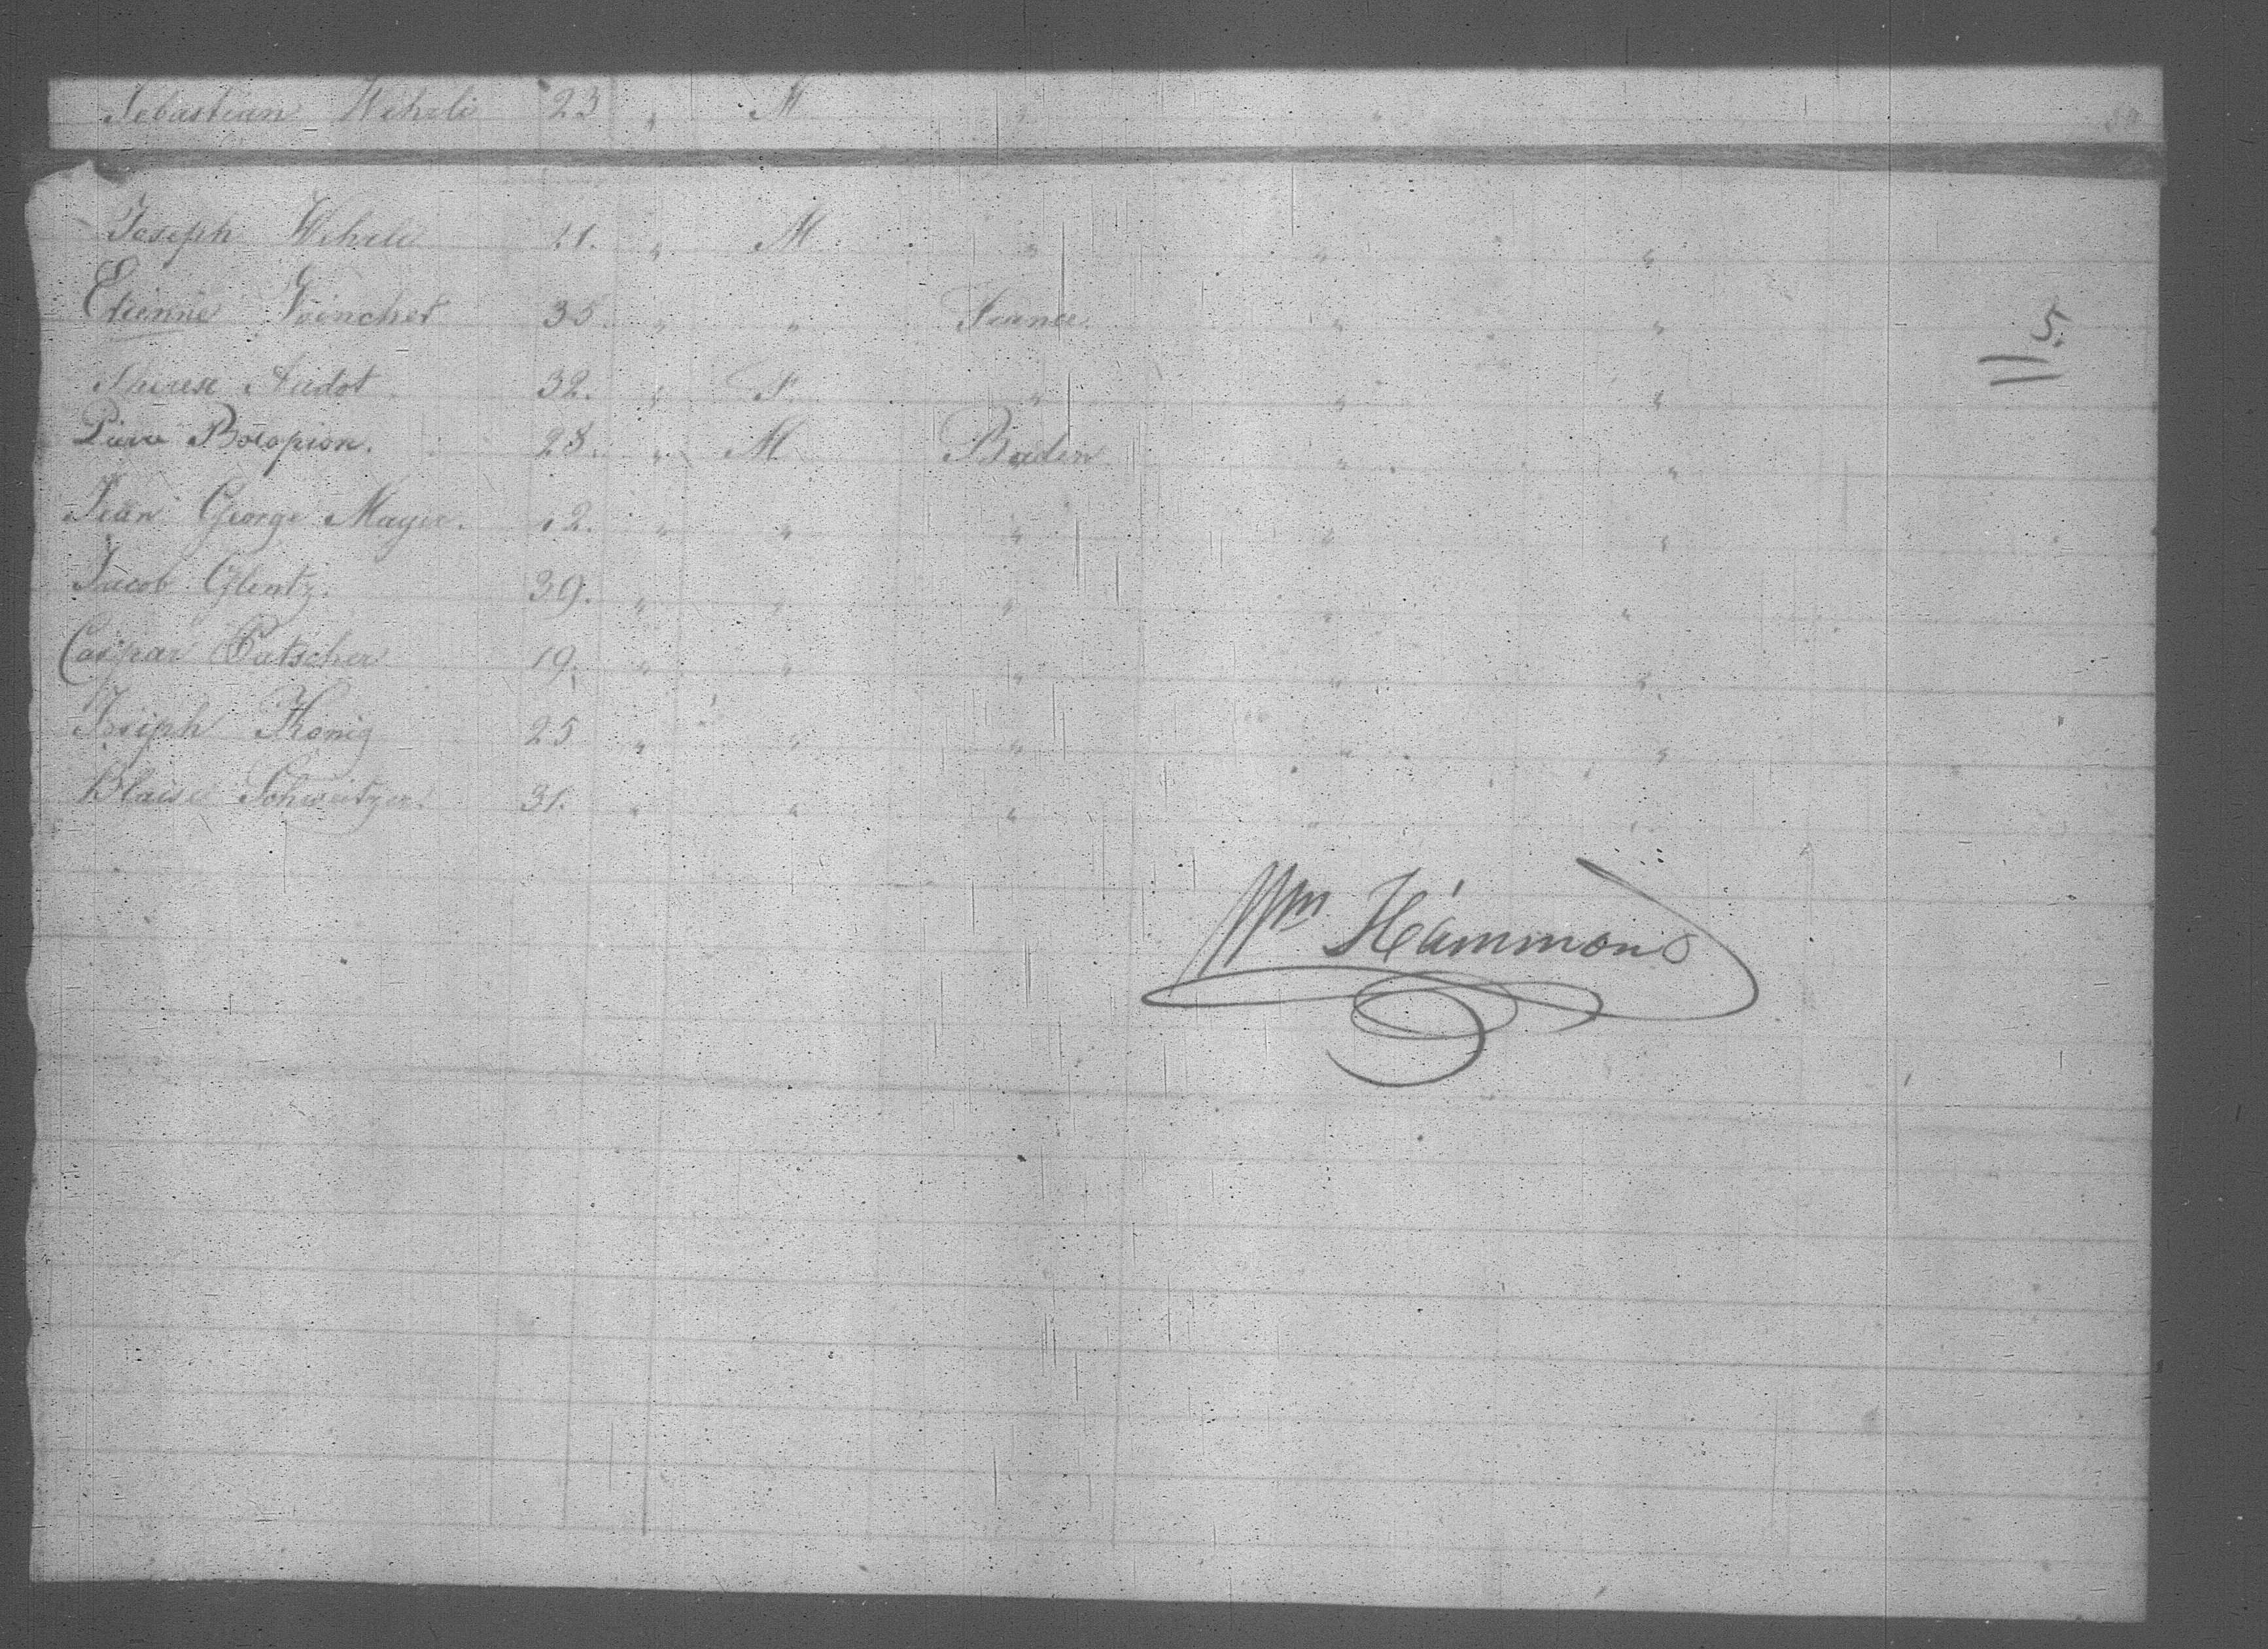 Sebastian Wehrli 23 " M " "
Joseph Wehrli 21. " M. " " "
Etienne Voinchet 35. " " France. " "
Therese Audot. 32. " F. " " "
Pierre Bocopion. 28. " M Baden " "
Jean George Mayer. 12. " " " " "
Jacob Glentz. 39. " " " " "
Caspar Patscher 19. " " " " "
Joseph Konig 25 " " " " "
Blaise Schweitzer. 31. " " " " "
5.
Wm Hammond